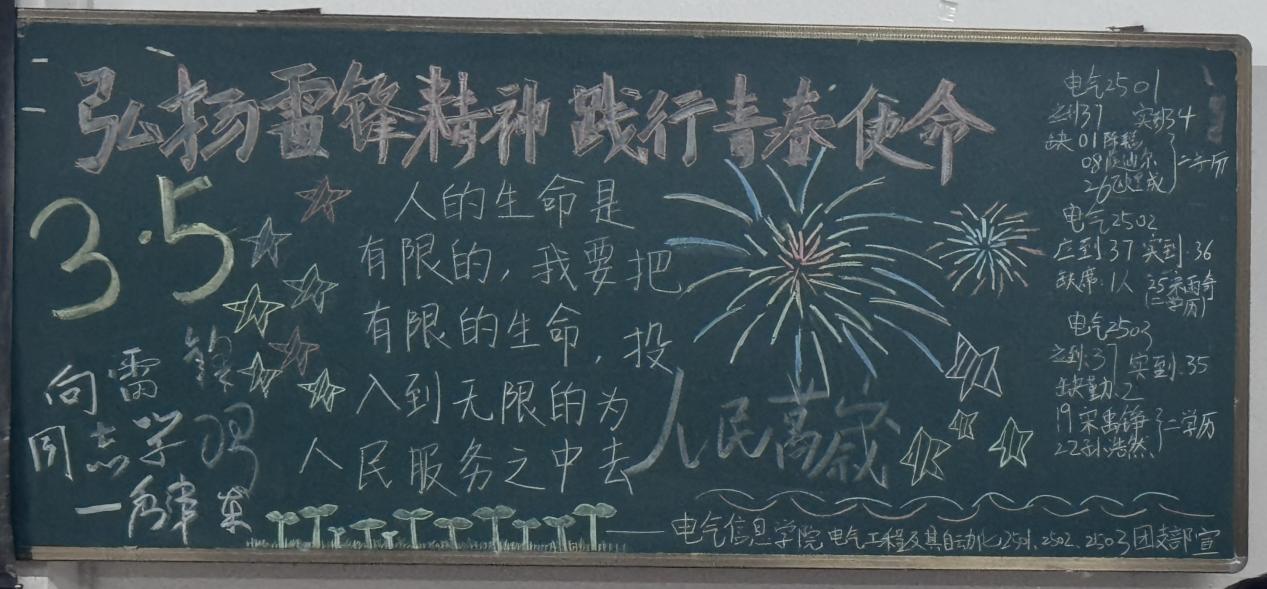 弘扬雷锋精神 践行青春使命
3.5
向雷锋
同志学习
人的生命是
有限的，我要把
有限的生命，投
入到无限的为
人民服务之中去
人民萬歲
——电气信息学院电气工程及其自动化2501、2502、2503团支部宣
电气2501
应到37 实到34
缺01
08
26
二学历
电气2502
应到37 实到:36
缺席:1人 25
二学历
电气2503
应到:37 实到:35
缺勤:2
19宋禹铮
22孙浩然
二学历